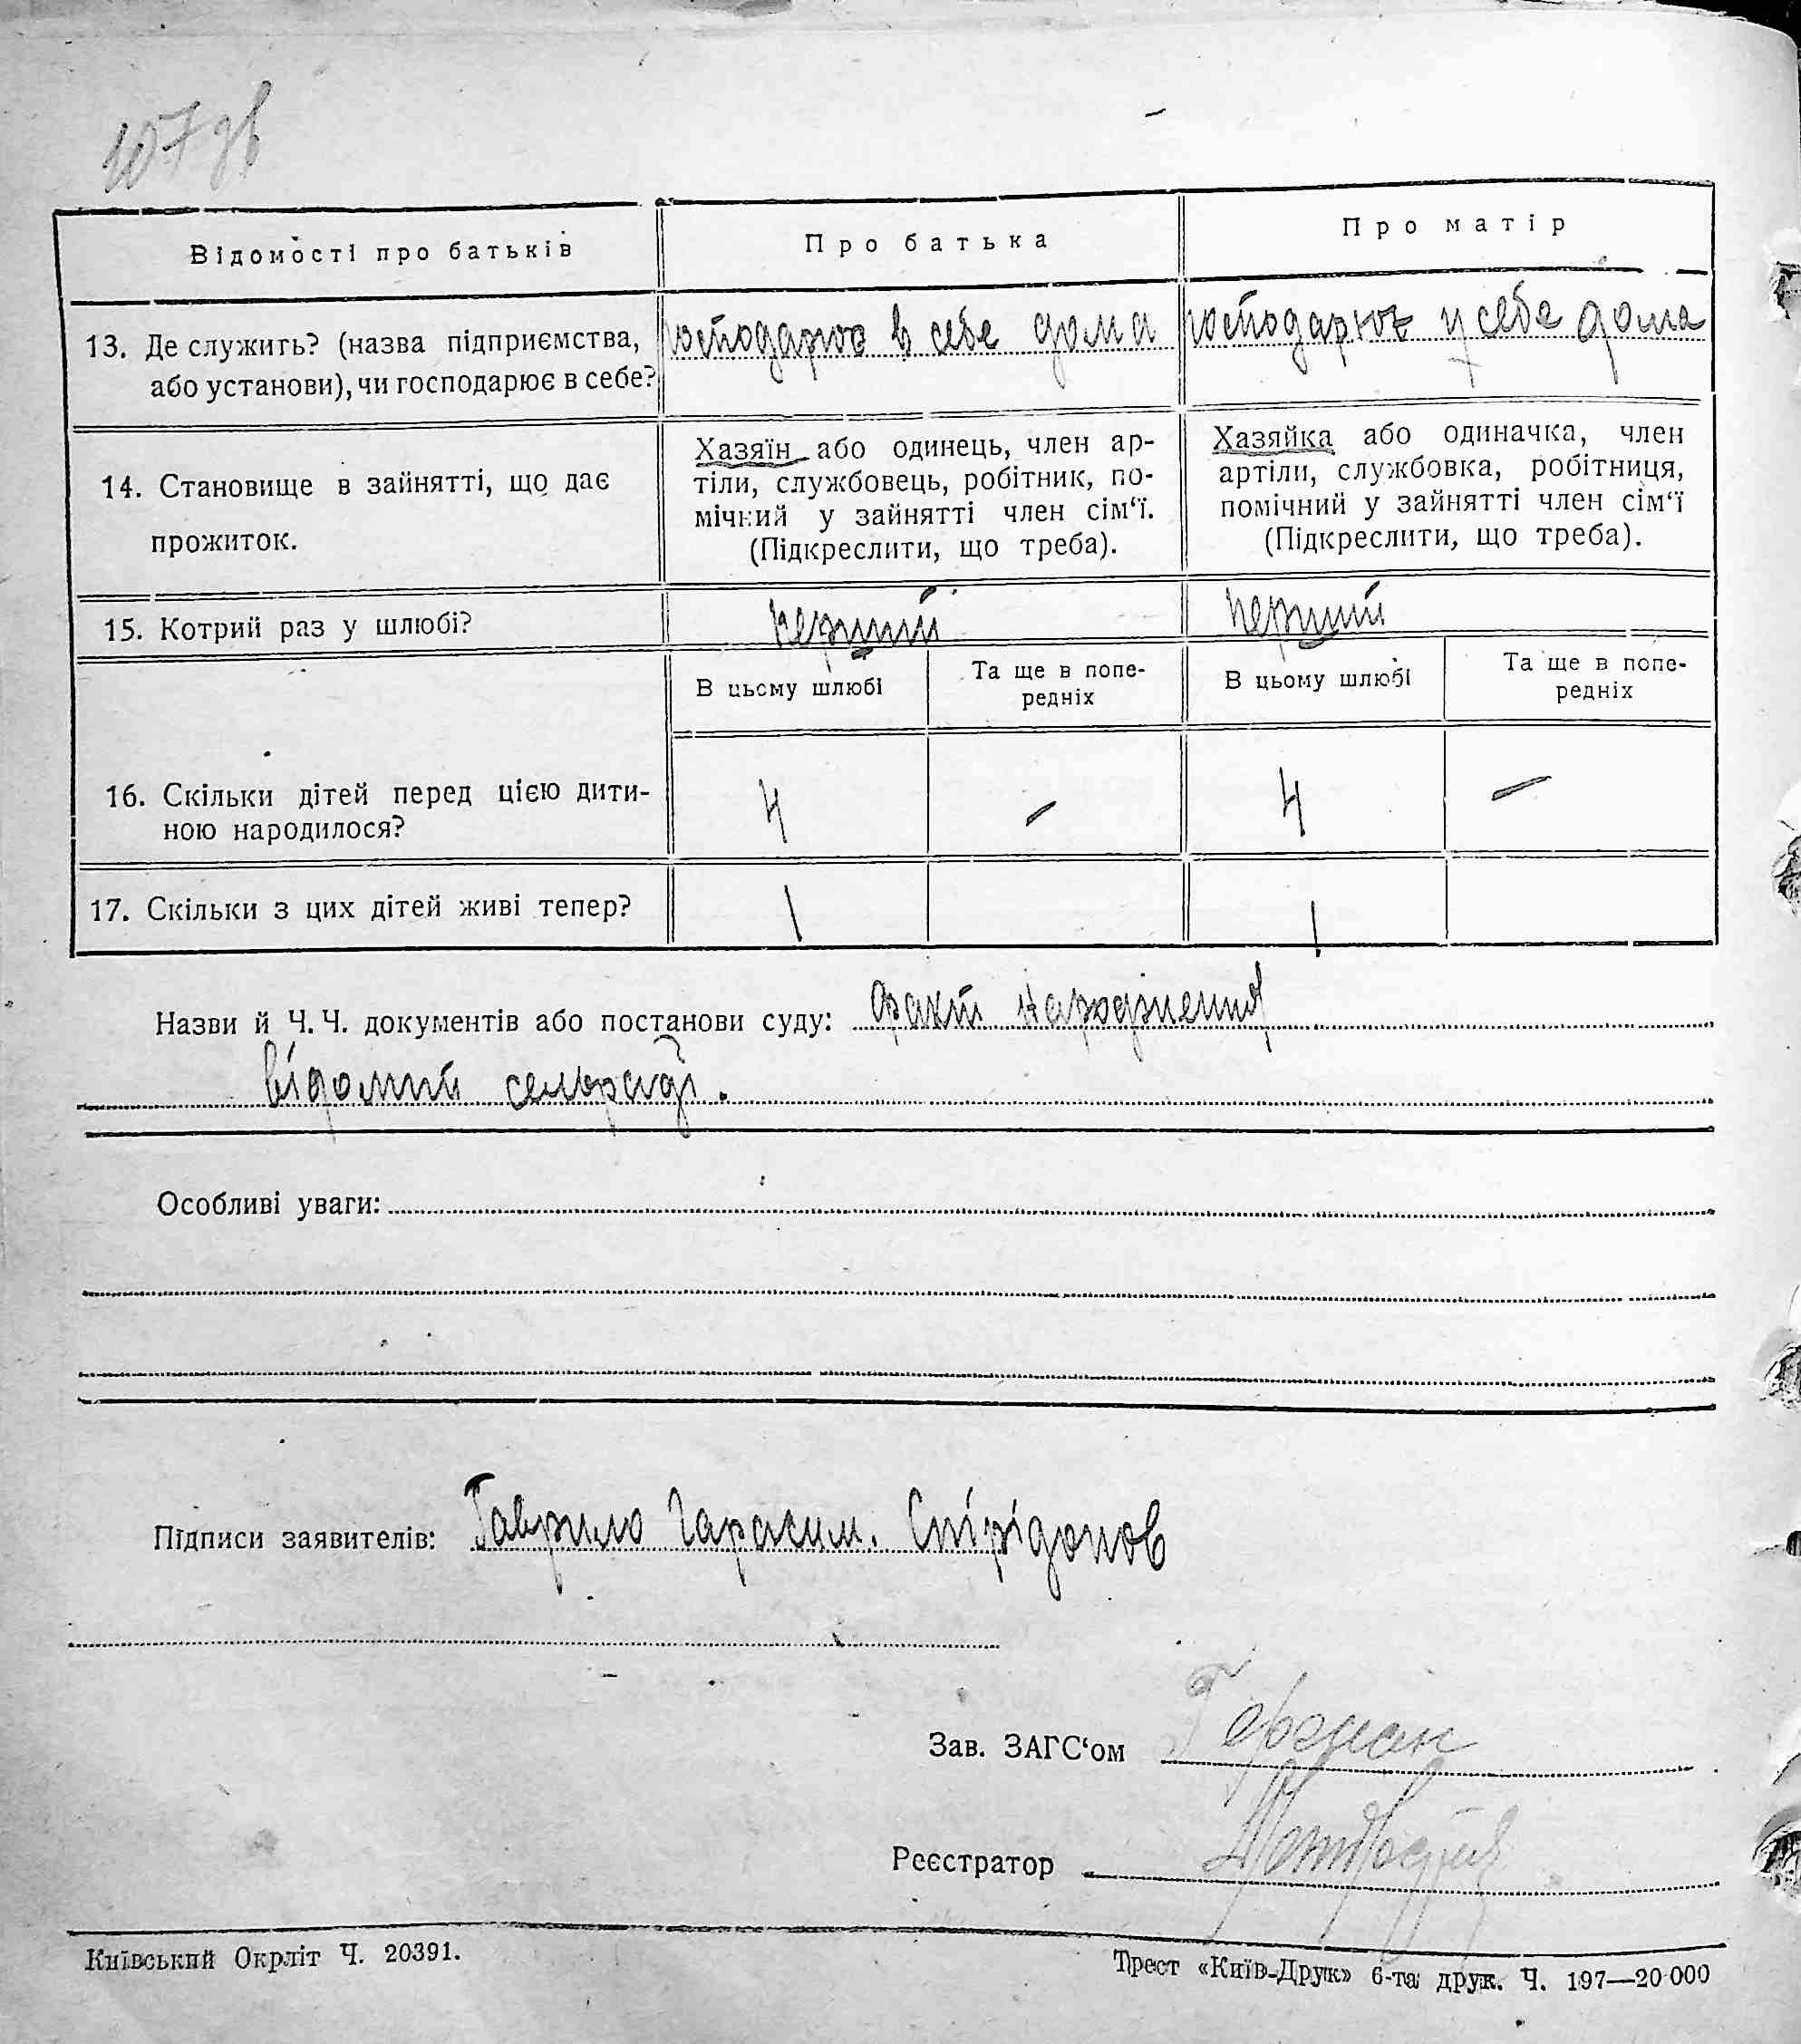 107 зв
Відомості про батьків
Про батька
Про матір
13. Де служить? (назва підприємства,
або установи), чи господарює в себе?
господарює в себе дома
господарює у себе дома
14. Становище в зайнятті, що дає
прожиток.
Хазяїн або одинець, член ар-
тіли, службовець, робітник, по-
мічний у зайнятті член сім‘ї.
(Підкреслити, що треба).
Хазяйка або одиначка, член
артіли, службовка, робітниця,
помічний у зайнятті член сім‘ї
(Підкреслити, що треба).
15. Котрий раз у шлюбі?
перший
перший
В цьому шлюбі
Та ще в попе-
редніх
В цьому шлюбі
Та ще в попе-
редніх
16. Скільки дітей перед цією дити-
ною народилося?
4 - 4 -
17. Скільки з цих дітей живі тепер?
1 1
Назви й Ч. Ч. документів або постанови суду: факт народження
відомий сельраді.
Особливі уваги:
Підписи заявителів: Гаврило Гарасим. Спірідонов
Зав. ЗАГС‘ом
Реєстратор
Київський Окрліт Ч. 20391.
Трест «Київ-Друк» 6-та друк. Ч. 197—20·000